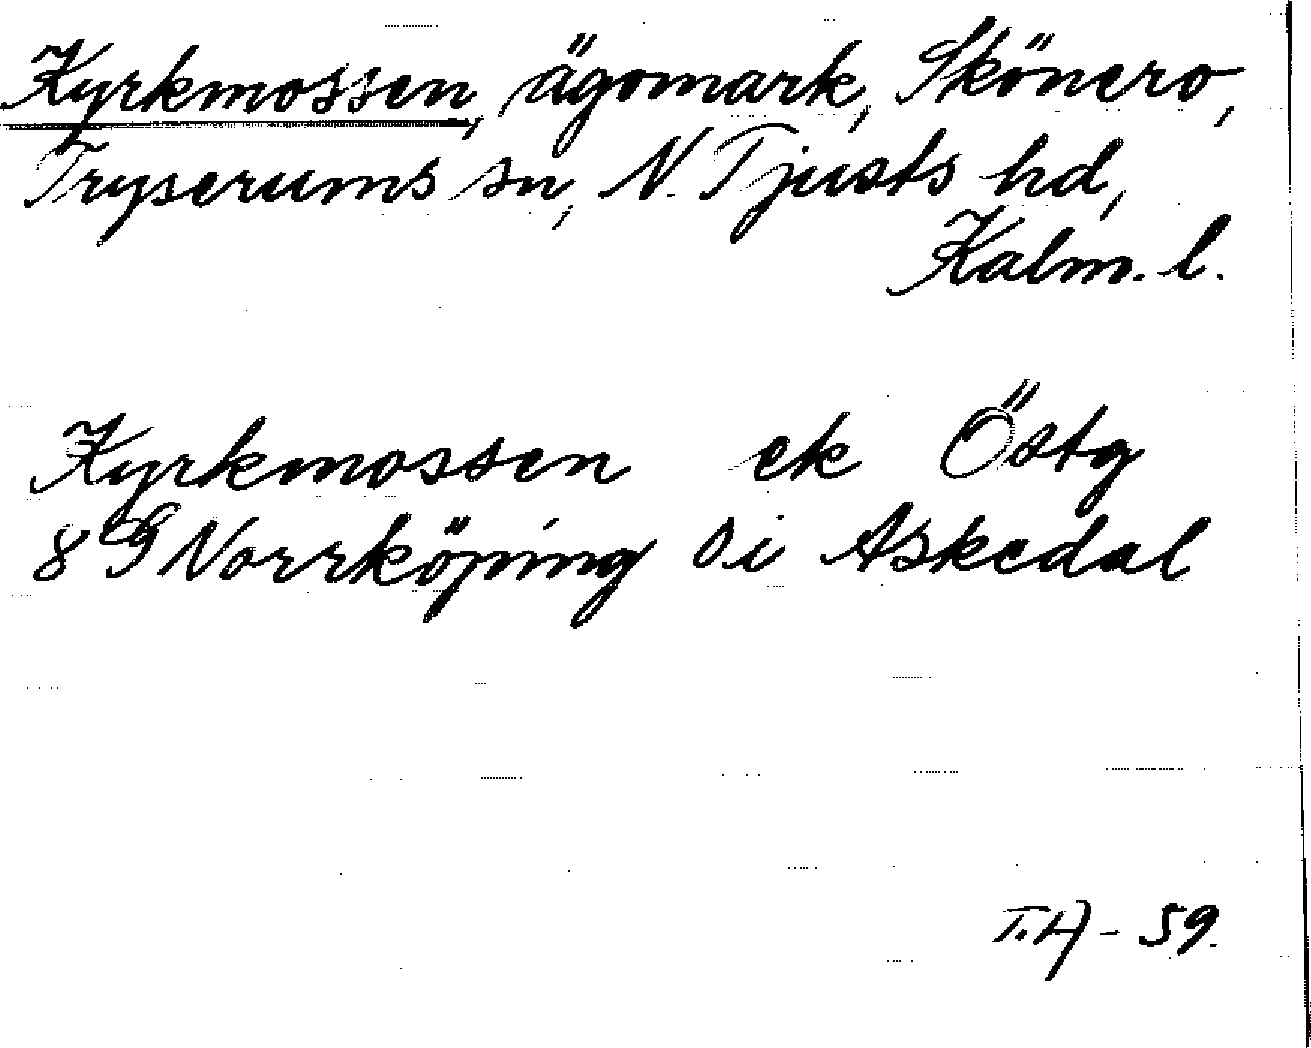 Kyrkmossen, ägomark, Skönero,
Tryserums sn, N. Tjusts hd,
Kalm. l.
Kyrkmossen ek Östg
8 G Norrköping Si Askedal
T.H - 59.